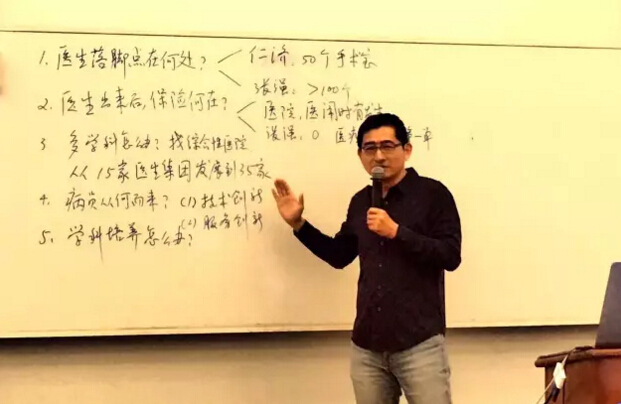 1. 医生落脚点在何处? 仁济, 50个手术室
张强: >100个
2. 医生出来后, 保险何在? 医院, 医闹时有发生
张强, 0 医疗
3 多学科怎么办? 找综合性医院
从15家医生集团发展到35家
4. 病员从何而来? (1)技术创新
(2)服务创新
5. 学科培养怎么办?